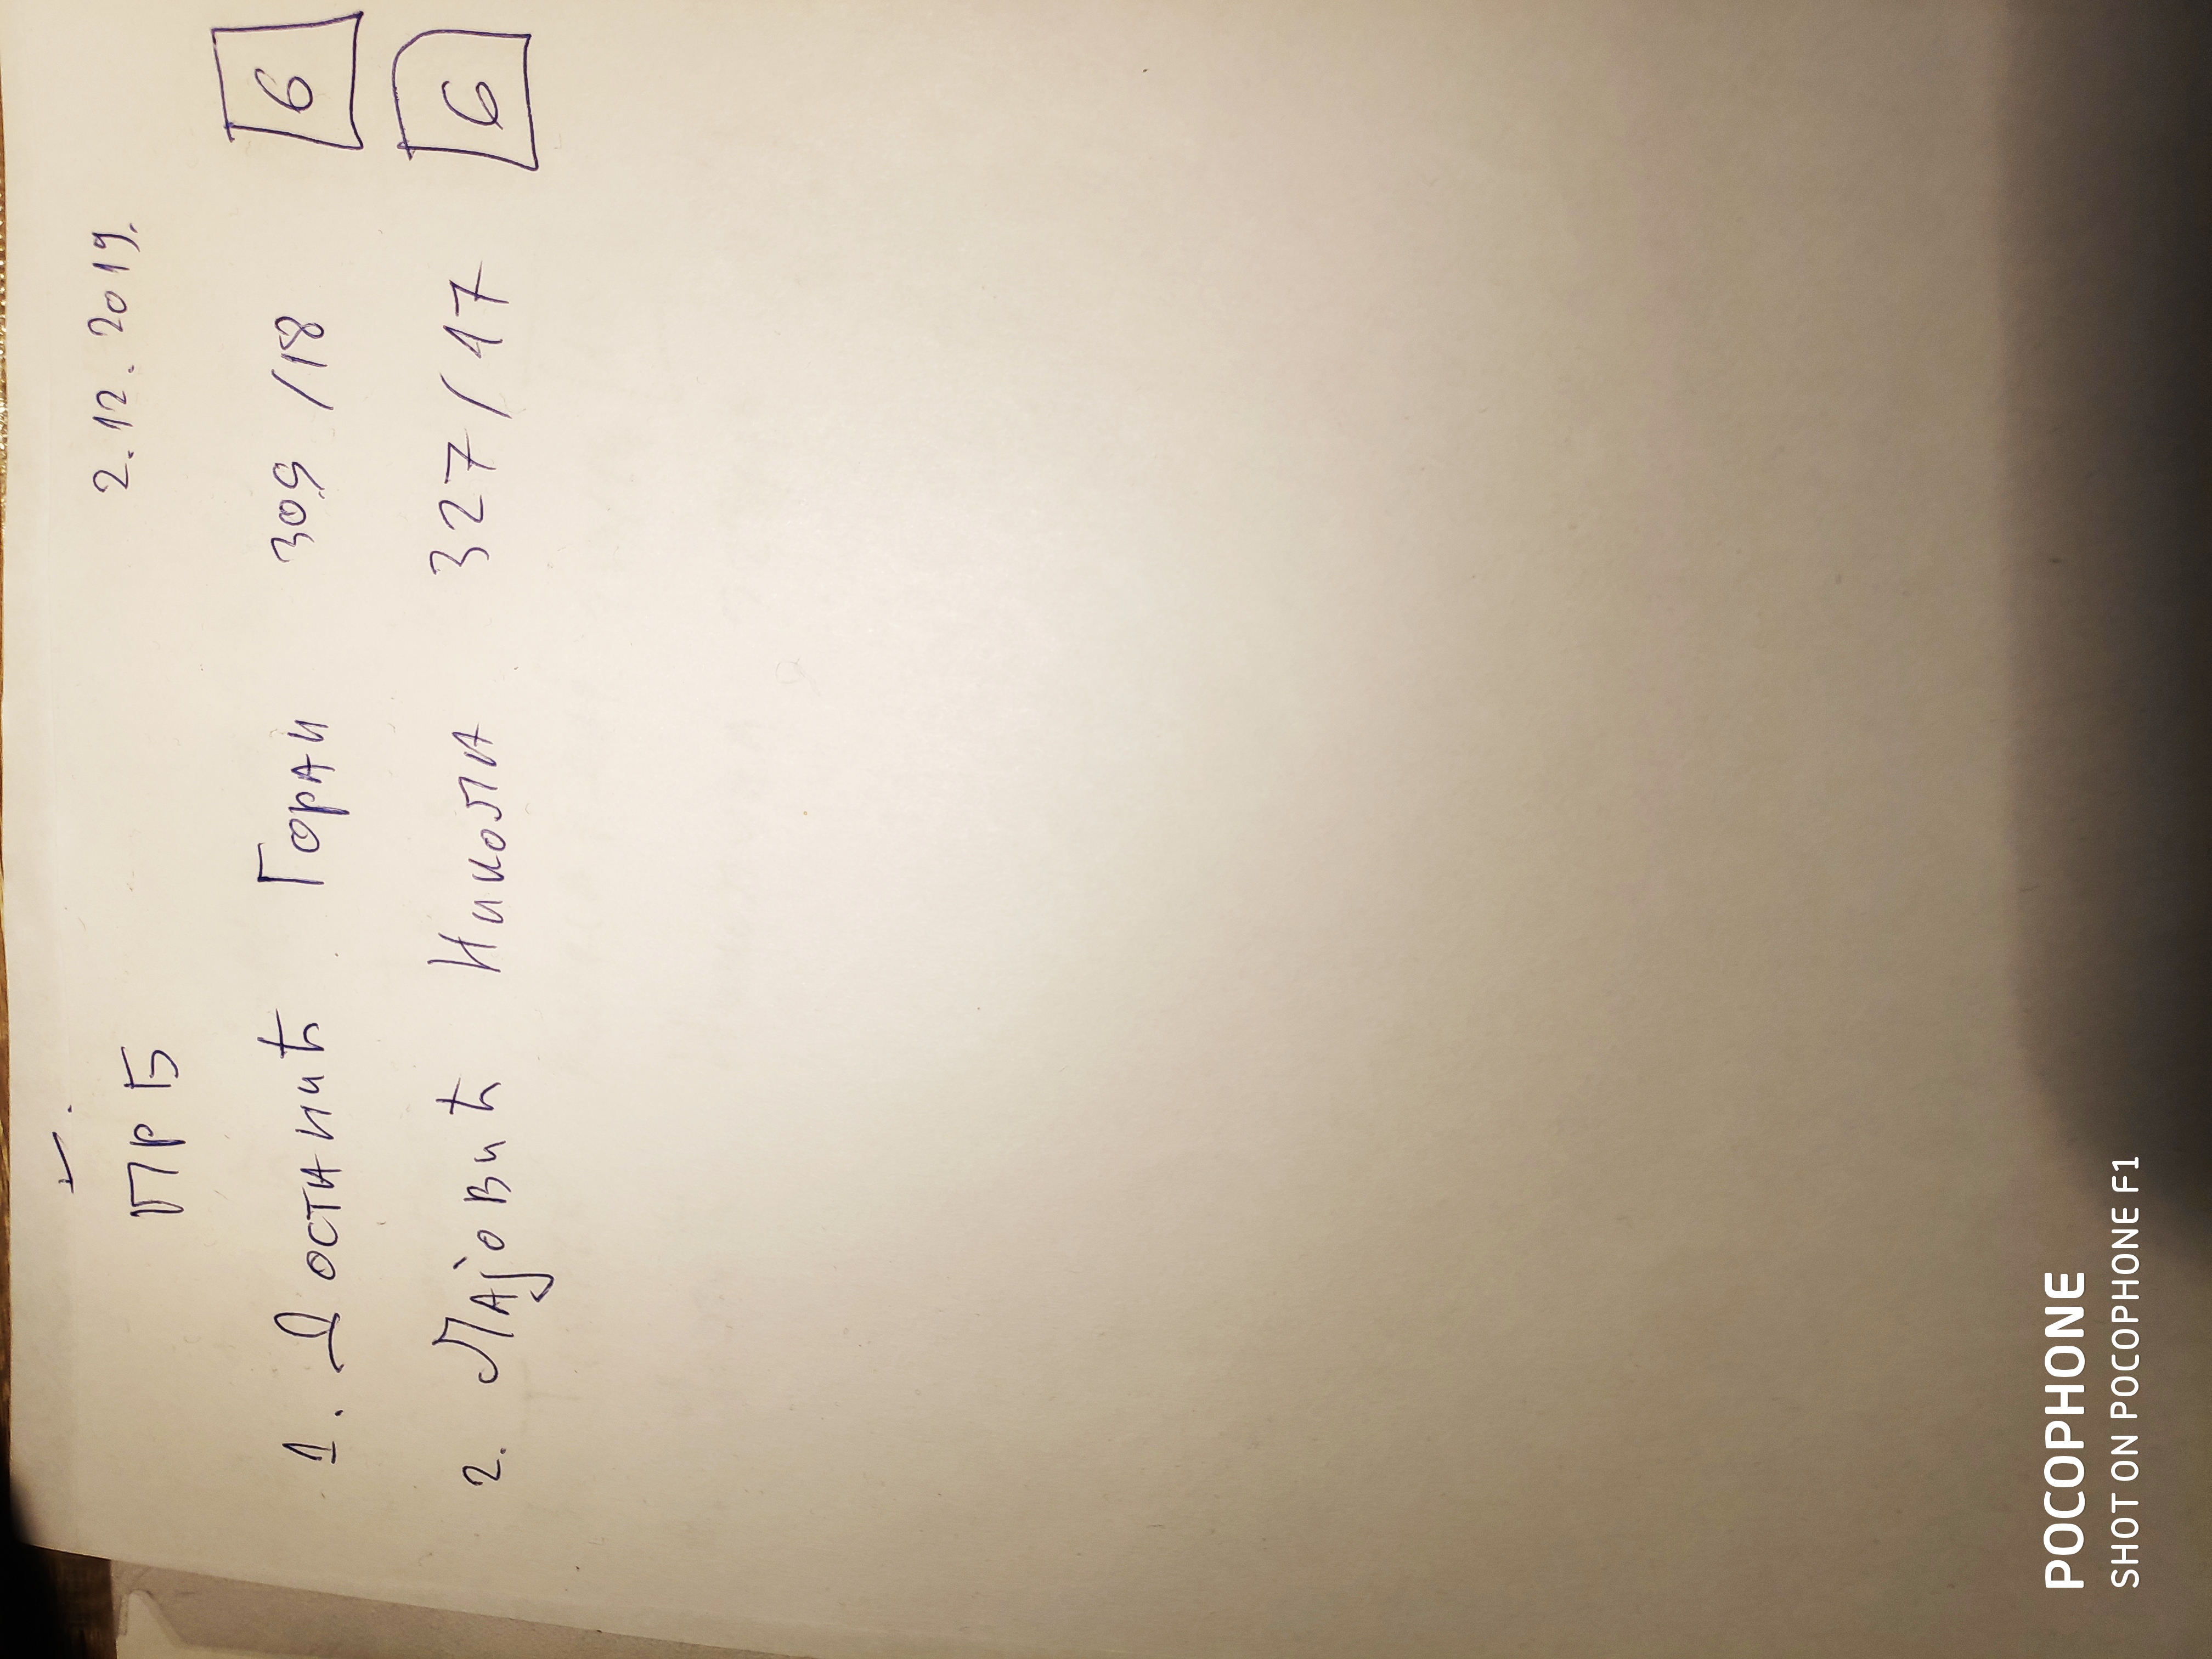 ПРБ 2.12.2019.
1. Достанић Горан 309/18 6
2. Лајовић Никола 327/17 6
POCOPHONE
SHOT ON POCOPHONE F1